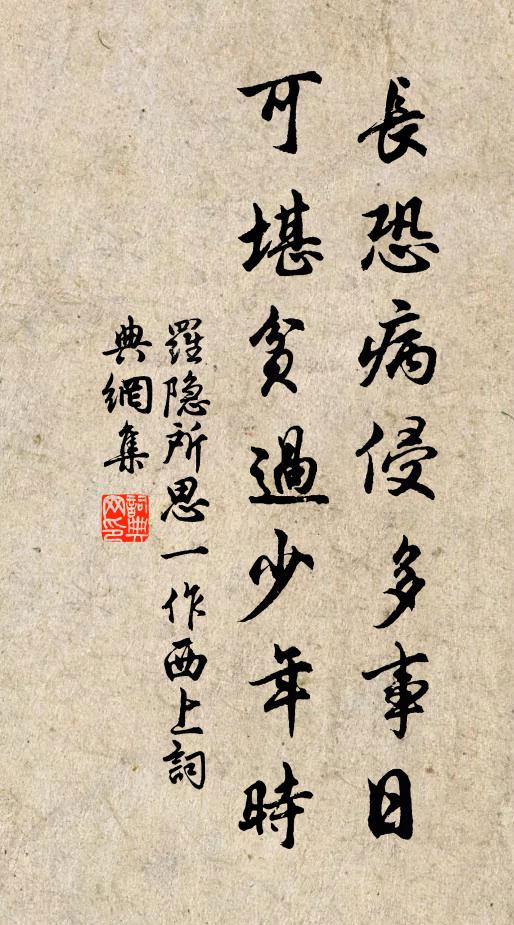 長恐病侵多事日
可堪貧過少年時
羅隐所思一作西上詞
典網集
詞典网印